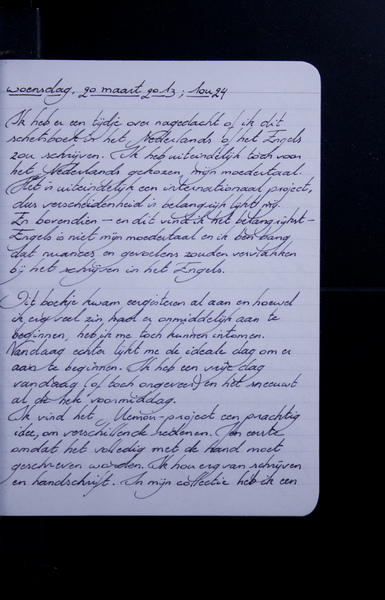 woensdag, 20 maart 2013; 10u24
Ik heb er een tijdje over nagedacht of ik dit
schetsboek in het Nederlands of het Engels
zou schrijven. Ik heb uiteindelijk toch voor
het Nederlands gekozen, mijn moedertaal.
Het is uiteindelijk een internationaal project,
dus verscheidenheid is belangrijk lijkt mij.
En bovendien – en dit vind ik het belangrijkst –
Engels is niet mijn moedertaal en ik ben bang
dat nuances en gevoelens zouden vervlakken
bij het schrijven in het Engels.
Dit boekje kwam eergisteren al aan en hoewel
ik erg veel zin had er onmiddellijk aan te
beginnen, heb ik me toch kunnen intomen.
Vandaag echter lijkt me de ideale dag om er
aan te beginnen. Ik heb een vrije dag
vandaag (of toch ongeveer) en het sneeuwt
al de hele voormiddag.
Ik vind het -project een prachtig
idee, om verschillende redenen. Ten eerste
omdat het volledig met de hand moet
geschreven worden. Ik hou erg van schrijven
en handschrift. In mijn collectie heb ik een